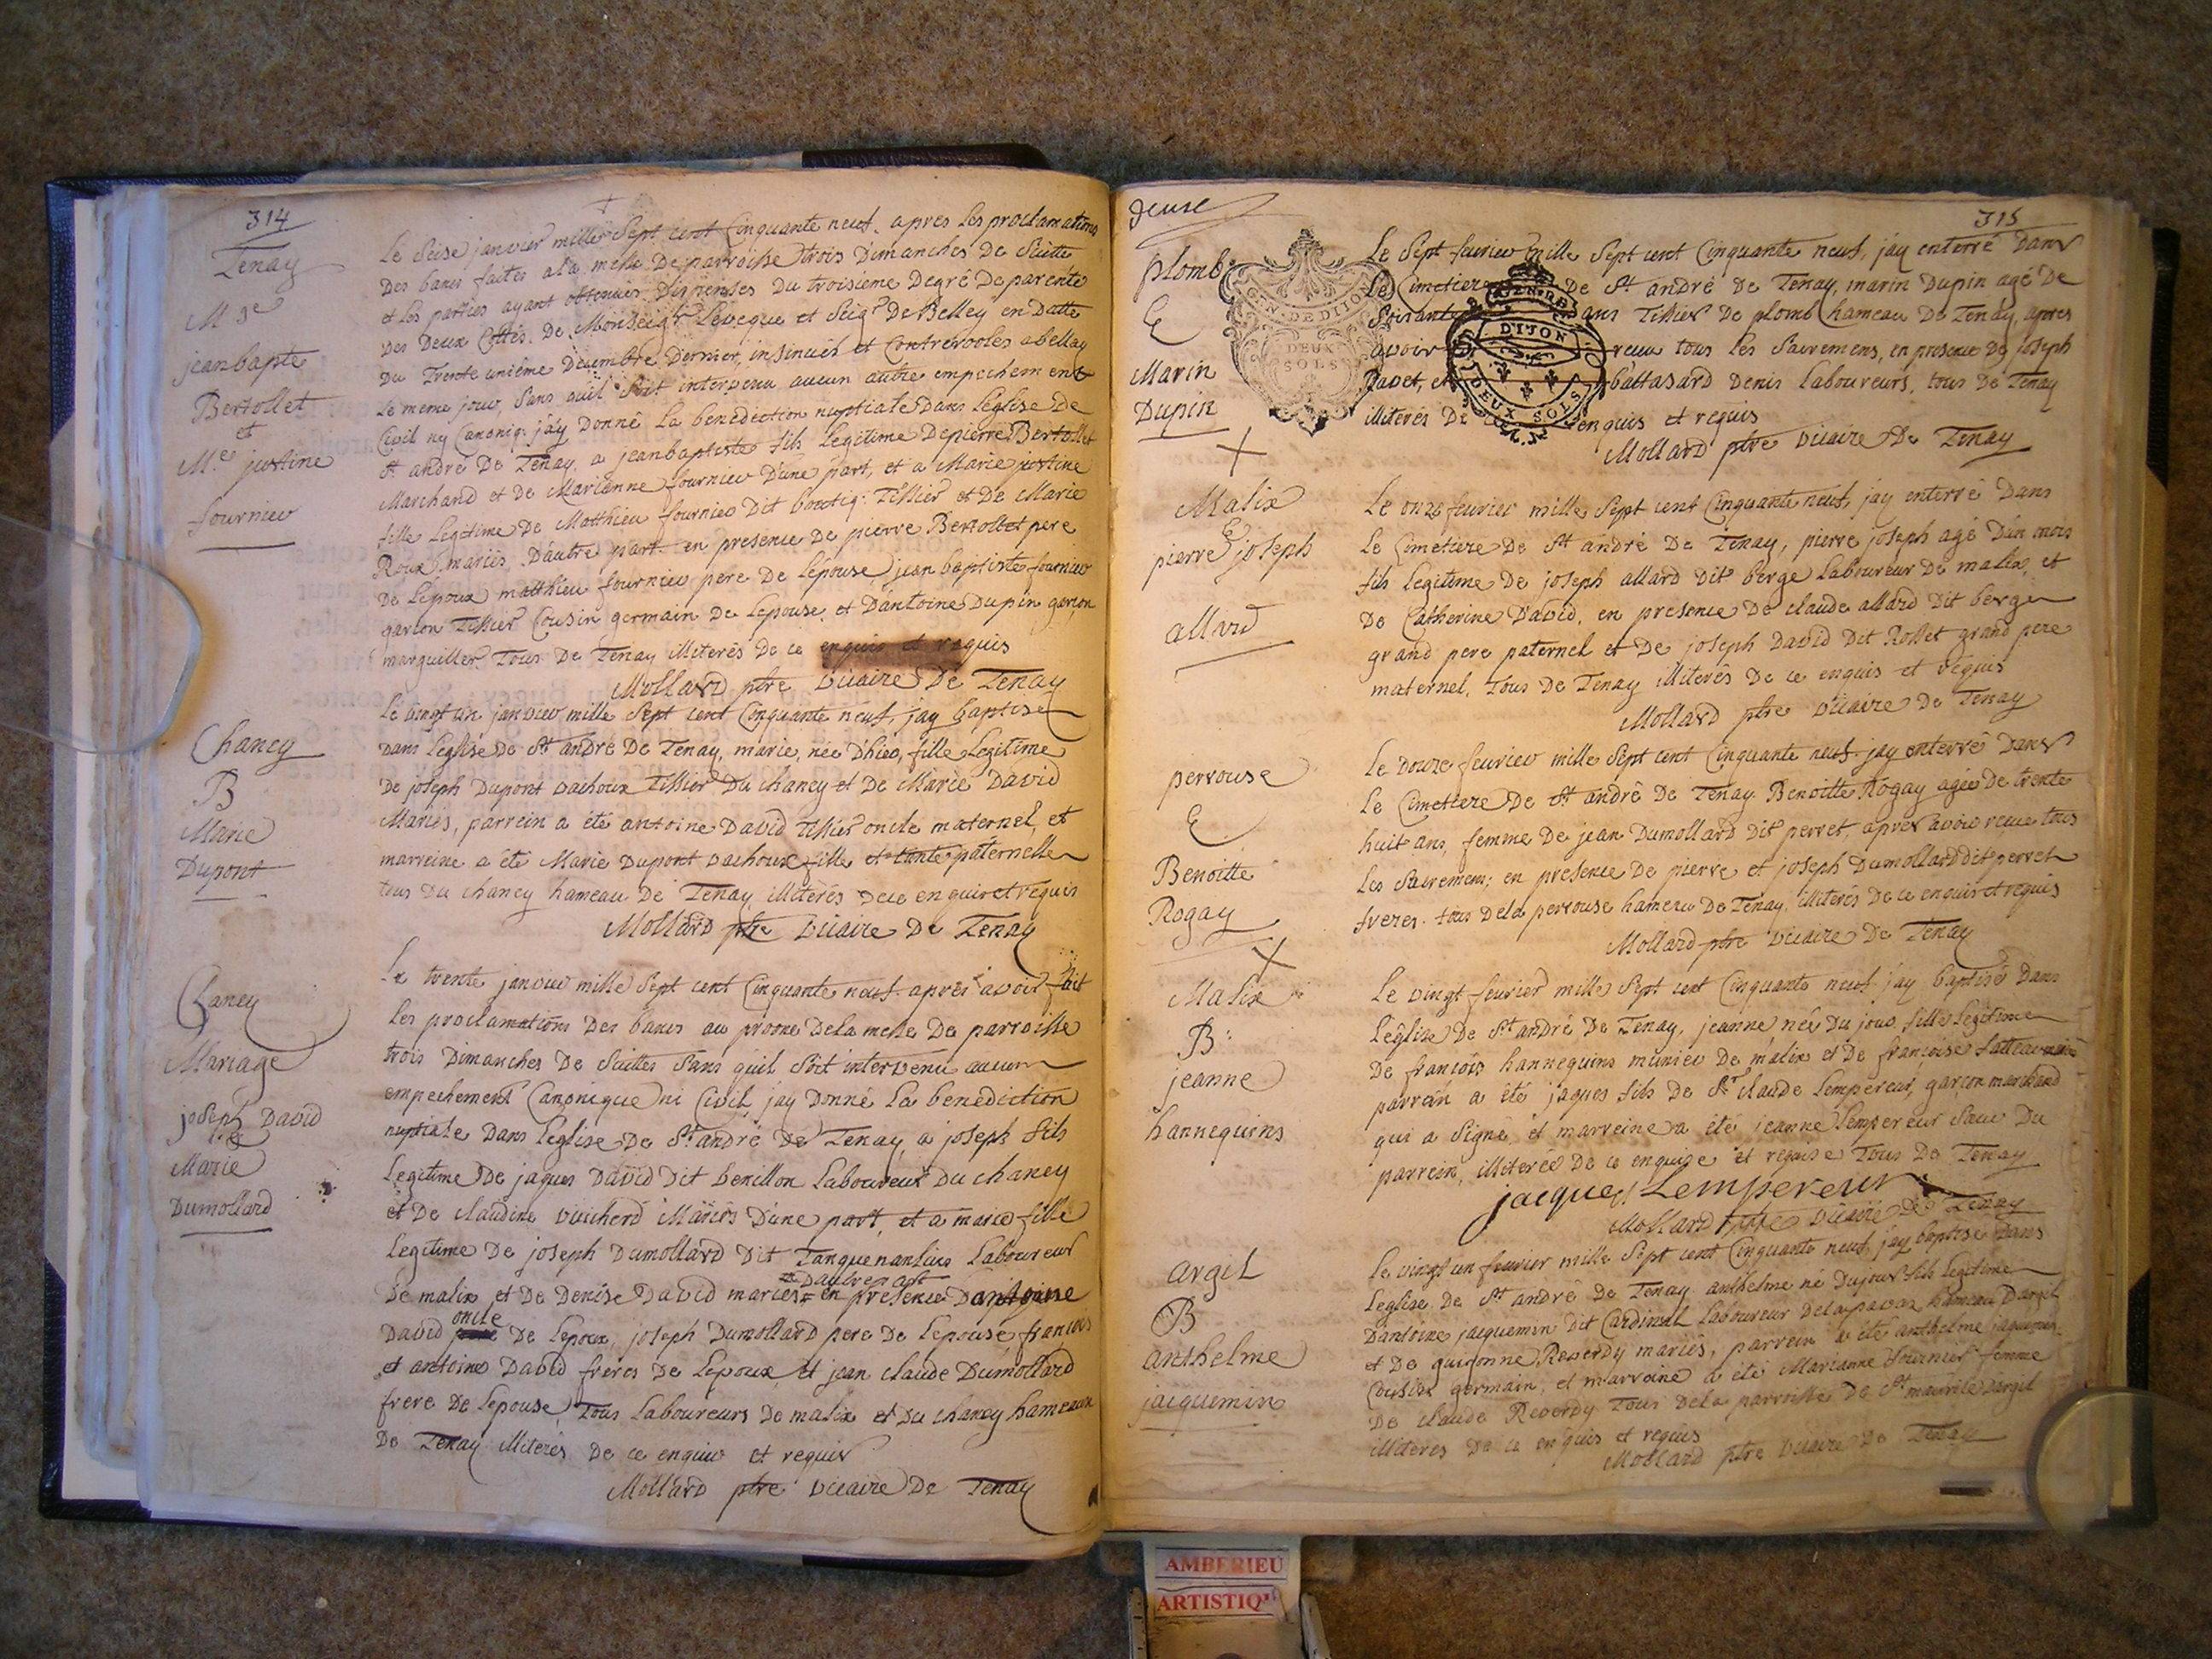 314
Tenay
M.ge
jean bapte
Bertollet
et
M.e justine
fournier
Le seise janvier mille sept cent cinquante neuf, apres les proclamations
des bancs faites a la messe de parroisse trois dimanches de suitte
et les parties ayant obtenuës dispenses du troisième degré de parenté
des deux cottés, de Monseigr Leveque et Seigr de Belley en datte
du trente unième decembre dernier, insinuées et controrolées a bellay
le meme jour, sans quil soit intervenu aucun autre empechement
civil ny canoniq: j'ay donné la benediction nuptiale dans Léglise de
St andré de Tenay, a jean baptiste fils legitime de pierre Bertollet
Marchand et de Marianne fournier d'une part, et a Marie justine
fille legitime de Matthieu fournier dit Tissier et de Marie
Roux mariés, d'autre part en presence de pierre Bertollet pere
de Lépoux matthieu fournier pere de Lépouse, jean baptiste fournier
garcon Tissier cousin germain de Lepouse, et d'antoine Dupin garcon
marguiller, tous de Tenay illiterés de ce enquis et requis
Mollard ptre vicaire de Tenay
Chaney
B
Marie
Dupont
Le vingt un janvier mille sept cent cinquante neuf, jay baptisé
dans Leglise de St andré de Tenay, marie, née d'hier, fille legitime
de joseph Dupont vachoux Tissier du chaney et de Marie David
Mariés, parrein a été antoine David Tissier oncle maternel, et
marreine a été Marie Dupont vachoux fille et tante paternelle
tous du chaney hameau de Tenay illiterés de ce enquis et requis
Mollard ptre vicaire de Tenay
Chaney
Mariage
joseph David
&
Marie
Dumollard
Le trente janvier mille sept cent cinquante neuf, après avoir fait
les proclamations des bancs au prosne de la messe de parroisse
trois dimanches de suittes sans quil soit intervenu aucun
empechement canonique ni civil, jay donné la benédiction
nuptiale dans Leglise de St andré de Tenay, a joseph fils
legitime de jaques David dit benillon Laboureur du chaney
et de claudine vuicherd Mariés d'une part, et a marie fille
legitime de joseph Dumollard dit Laboureur
d'autre part
de malix et de Denise David mariés = en presence d'antoine
oncle
David de Lepoux, joseph Dumollard pere de Lepouse francois
et antoine David freres de Lepoux, et jean claude Dumollard
frere de Lepouse, tous Laboureurs de malix et du chaney hameaux
de Tenay illiterés de ce enquis et requis
Mollard ptre vicaire de Tenay
deuse
315
plomb
E
Marin
Dupin
G.N. DE DIJON
DEUX
SOLS
DIJON
DEUX SOLS
Le sept fevrier mille sept cent cinquante neuf, jay enterré dans
Le cimetiere de St andré de Tenay, marin Dupin agé de
soixante ans Tissier de plomb hameau de Tenay, apres
avoir receu tous les sacremens, en presence de joseph
Pavet, et baltasard Denis Laboureurs, tous de Tenay
illiterés de enquis et requis
Mollard ptre vicaire de Tenay
Malix
E
pierre joseph
allard
Le onze fevrier mille sept cent cinquante neuf, jay enterré dans
Le cimetiere de St andré de Tenay, pierre joseph agé dun mois
fils legitime de joseph allard dit berge laboureur de malix, et
de Catherine David, en presence de claude allard dit berge
grand pere paternel et de joseph David dit Rollet grand pere
maternel, tous de Tenay illiterés de ce enquis et requis
Mollard ptre vicaire de Tenay
perrouse
E
Benoitte
Rogay
Le douze fevrier mille sept cent cinquante neuf jay enterré dans
Le Cimetiere de St andré de Tenay Benoitte Rogay agée de trente
huit ans, femme de jean Dumollard dit perret, apres avoir receu tous
les sacremens; en presence de pierre et joseph Dumollard dit perret
freres. tous de la perrouse hameau de Tenay, illiterés de ce enquis et requis
Mollard ptre vicaire de Tenay
Malix
B:
jeanne
hannequins
Le vingt fevrier mille sept cent cinquante neuf jay baptisé dans
Léglise de St andré de Tenay, jeanne née du jour, fille legitime
de francois hannequins munier de malix et de francoise
parrein a été jaques fils de Sr claude Lempereur, garcon marchand
qui a signé et marreine a été jeanne Lempereur sœur du
parrein, illiterée de ce enquise et requise Tous de Tenay
jacques Lempereur
Mollard ptre vicaire de Tenay
argil
B
anthelme
jacquemin
Le vingt un fevrier mille sept cent cinquante neuf, jay baptisé dans
Leglise de St andré de Tenay anthelme né du jour fils legitime
d'antoine jacquemin dit Cardinal laboureur de la hameau d'argil
et de guigonne Reverdy mariés, parrein a été anthelme jaquemin
Cousin germain, et marreine a été Marianne fournier femme
de claude Reverdy tous de la parroisse de St maurice d'argil
illiteres de ce enquis et requis
Mollard ptre vicaire de Tenay
AMBERIEU
ARTISTIQU